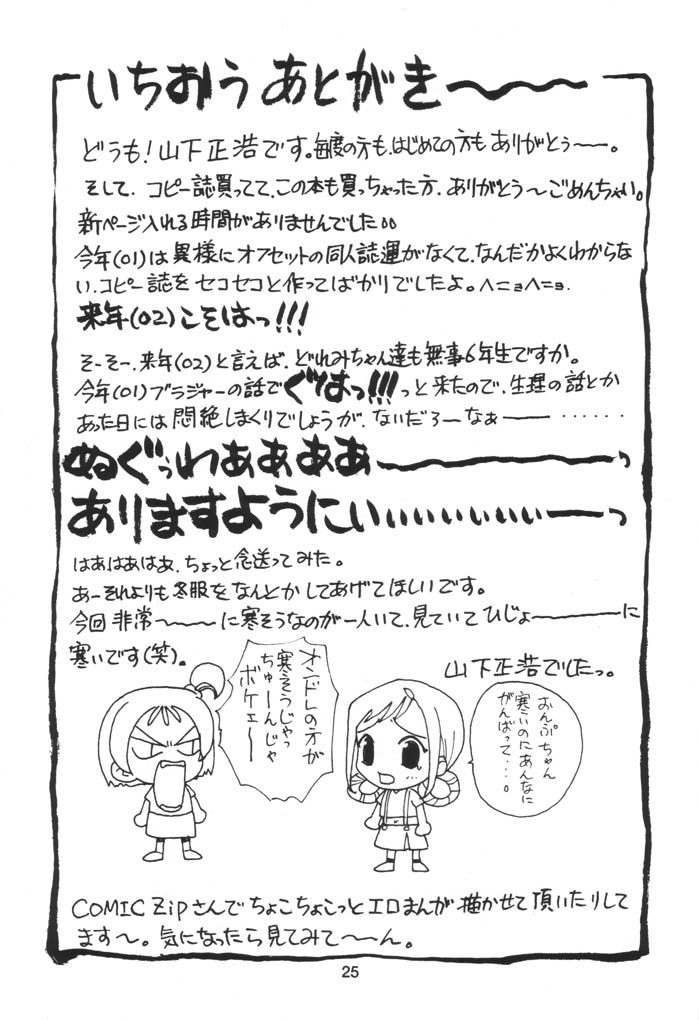 いちおう あとがき〜〜〜
どうも!山下正浩です。毎度の方も、はじめての方もありがとぅ〜ー。
そして、コピー誌買ってて、この本も買っちゃった方、ありがとう〜ごめんちゃい。
新ページ入れる時間がありませんでした。。
今年(01)は異様にオフセットの同人誌運がなくて、なんだかよくわからな
い、コピー誌をセコセコと作ってばかりでしたよ。ヘニョヘニョ
来年(02)こそはっ!!!
そーそー、来年(02)と言えば、どれみちゃん達も無事6年生ですか。
今年(01)ブラジャーの話でぐはっ!!!っと来たので、生理の話とか
あった日には悶絶しまくりでしょうが、ないだろーなぁー……
ぬぐっわぁぁぁぁ〜〜〜っ
ありますようにぃぃぃぃぃぃぃぃーっ
はあはあはぁ、ちょっと念送ってみた。
あーそれよりも冬服をなんとかしてあげてほしいです。
今回非常〜〜〜に寒そうなのが一人いて、見ていてひじょーーーに
寒いです(笑)。
山下正浩でしたっ。
オンドレの方が
寒そうじゃっ
ちゅーんじゃ
ボケェ〜
おんぷちゃん
寒いのにあんなに
がんばって…。
COMIC Zipさんでちょこちょこっとエロまんが、描かせて頂いたりして
ます〜。気になったら見てみて〜ん。
25